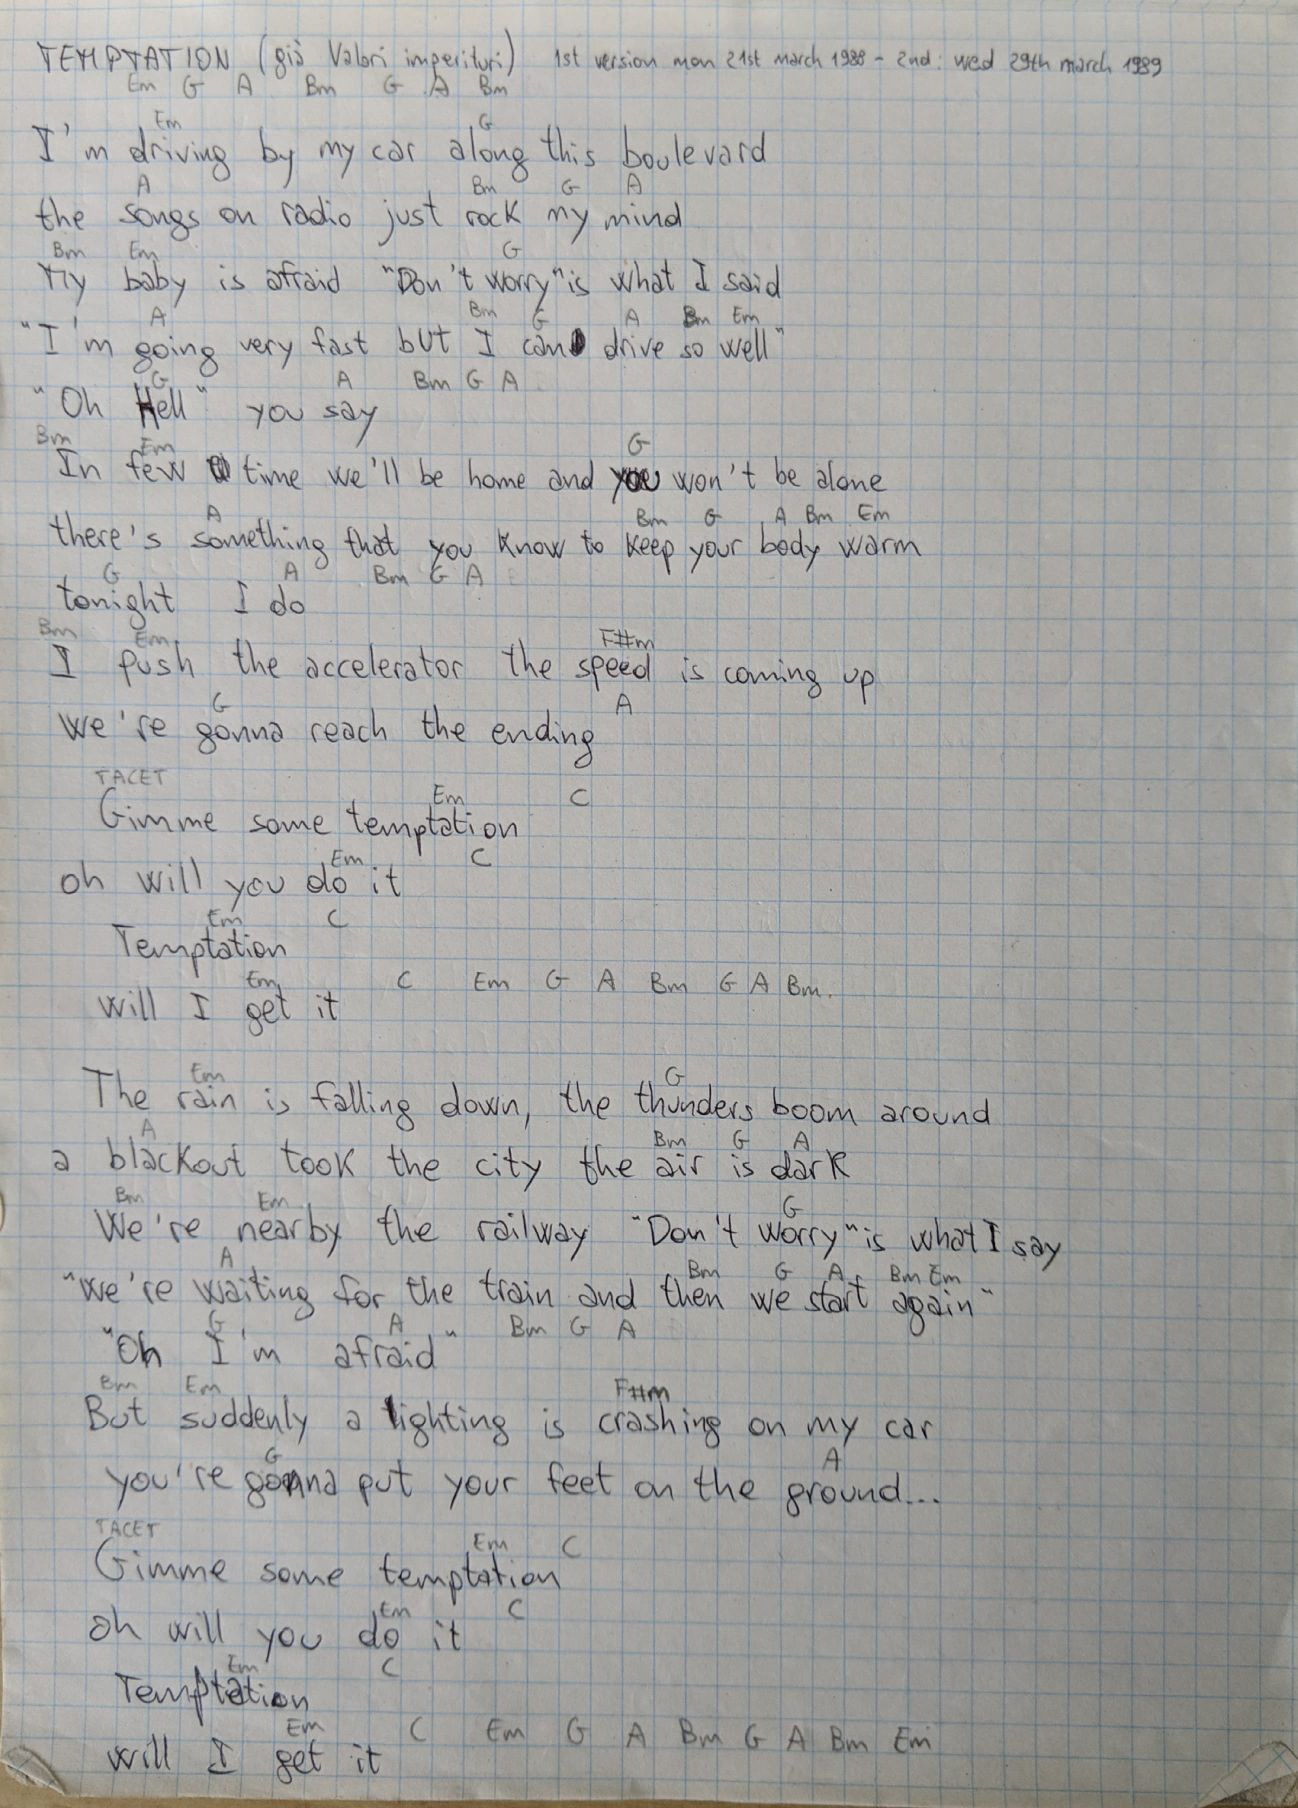 TEMPTATION (già Valori imperituri) 1st version mon 21st march 1988 - 2nd: wed 29th march 1989
Em G A Bm G A Bm
Em G
I'm driving by my car along this boulevard
A Bm G A
the songs on radio just rock my mind
Bm Em G
My baby is afraid "Don't worry" is what I said
A Bm G A Bm Em
"I'm going very fast but I can drive so well"
G A Bm G A
"Oh Hell" you say
Bm Em G
In few time we'll be home and you won't be alone
A Bm G A Bm Em
there's something that you know to keep your body warm
G A Bm G A
tonight I do
Bm Em F#m
I push the accelerator the speed is coming up
G A
we're gonna reach the ending
TACET Em C
Gimme some temptation
Em C
oh will you do it
Em C
Temptation
Em C Em G A Bm G A Bm.
will I get it
Em G
The rain is falling down, the thunders boom around
A Bm G A
a blackout took the city the air is dark
Bm Em G
We're nearby the railway "Don't worry" is what I say
A Bm G A Bm Em
"we're waiting for the train and then we start again"
G A Bm G A
"Oh I'm afraid"
Bm Em F#m
But suddenly a lighting is crashing on my car
G A
you're gonna put your feet on the ground...
TACET Em C
Gimme some temptation
Em C
oh will you do it
Em C
Temptation
Em C Em G A Bm G A Bm Em
will I get it